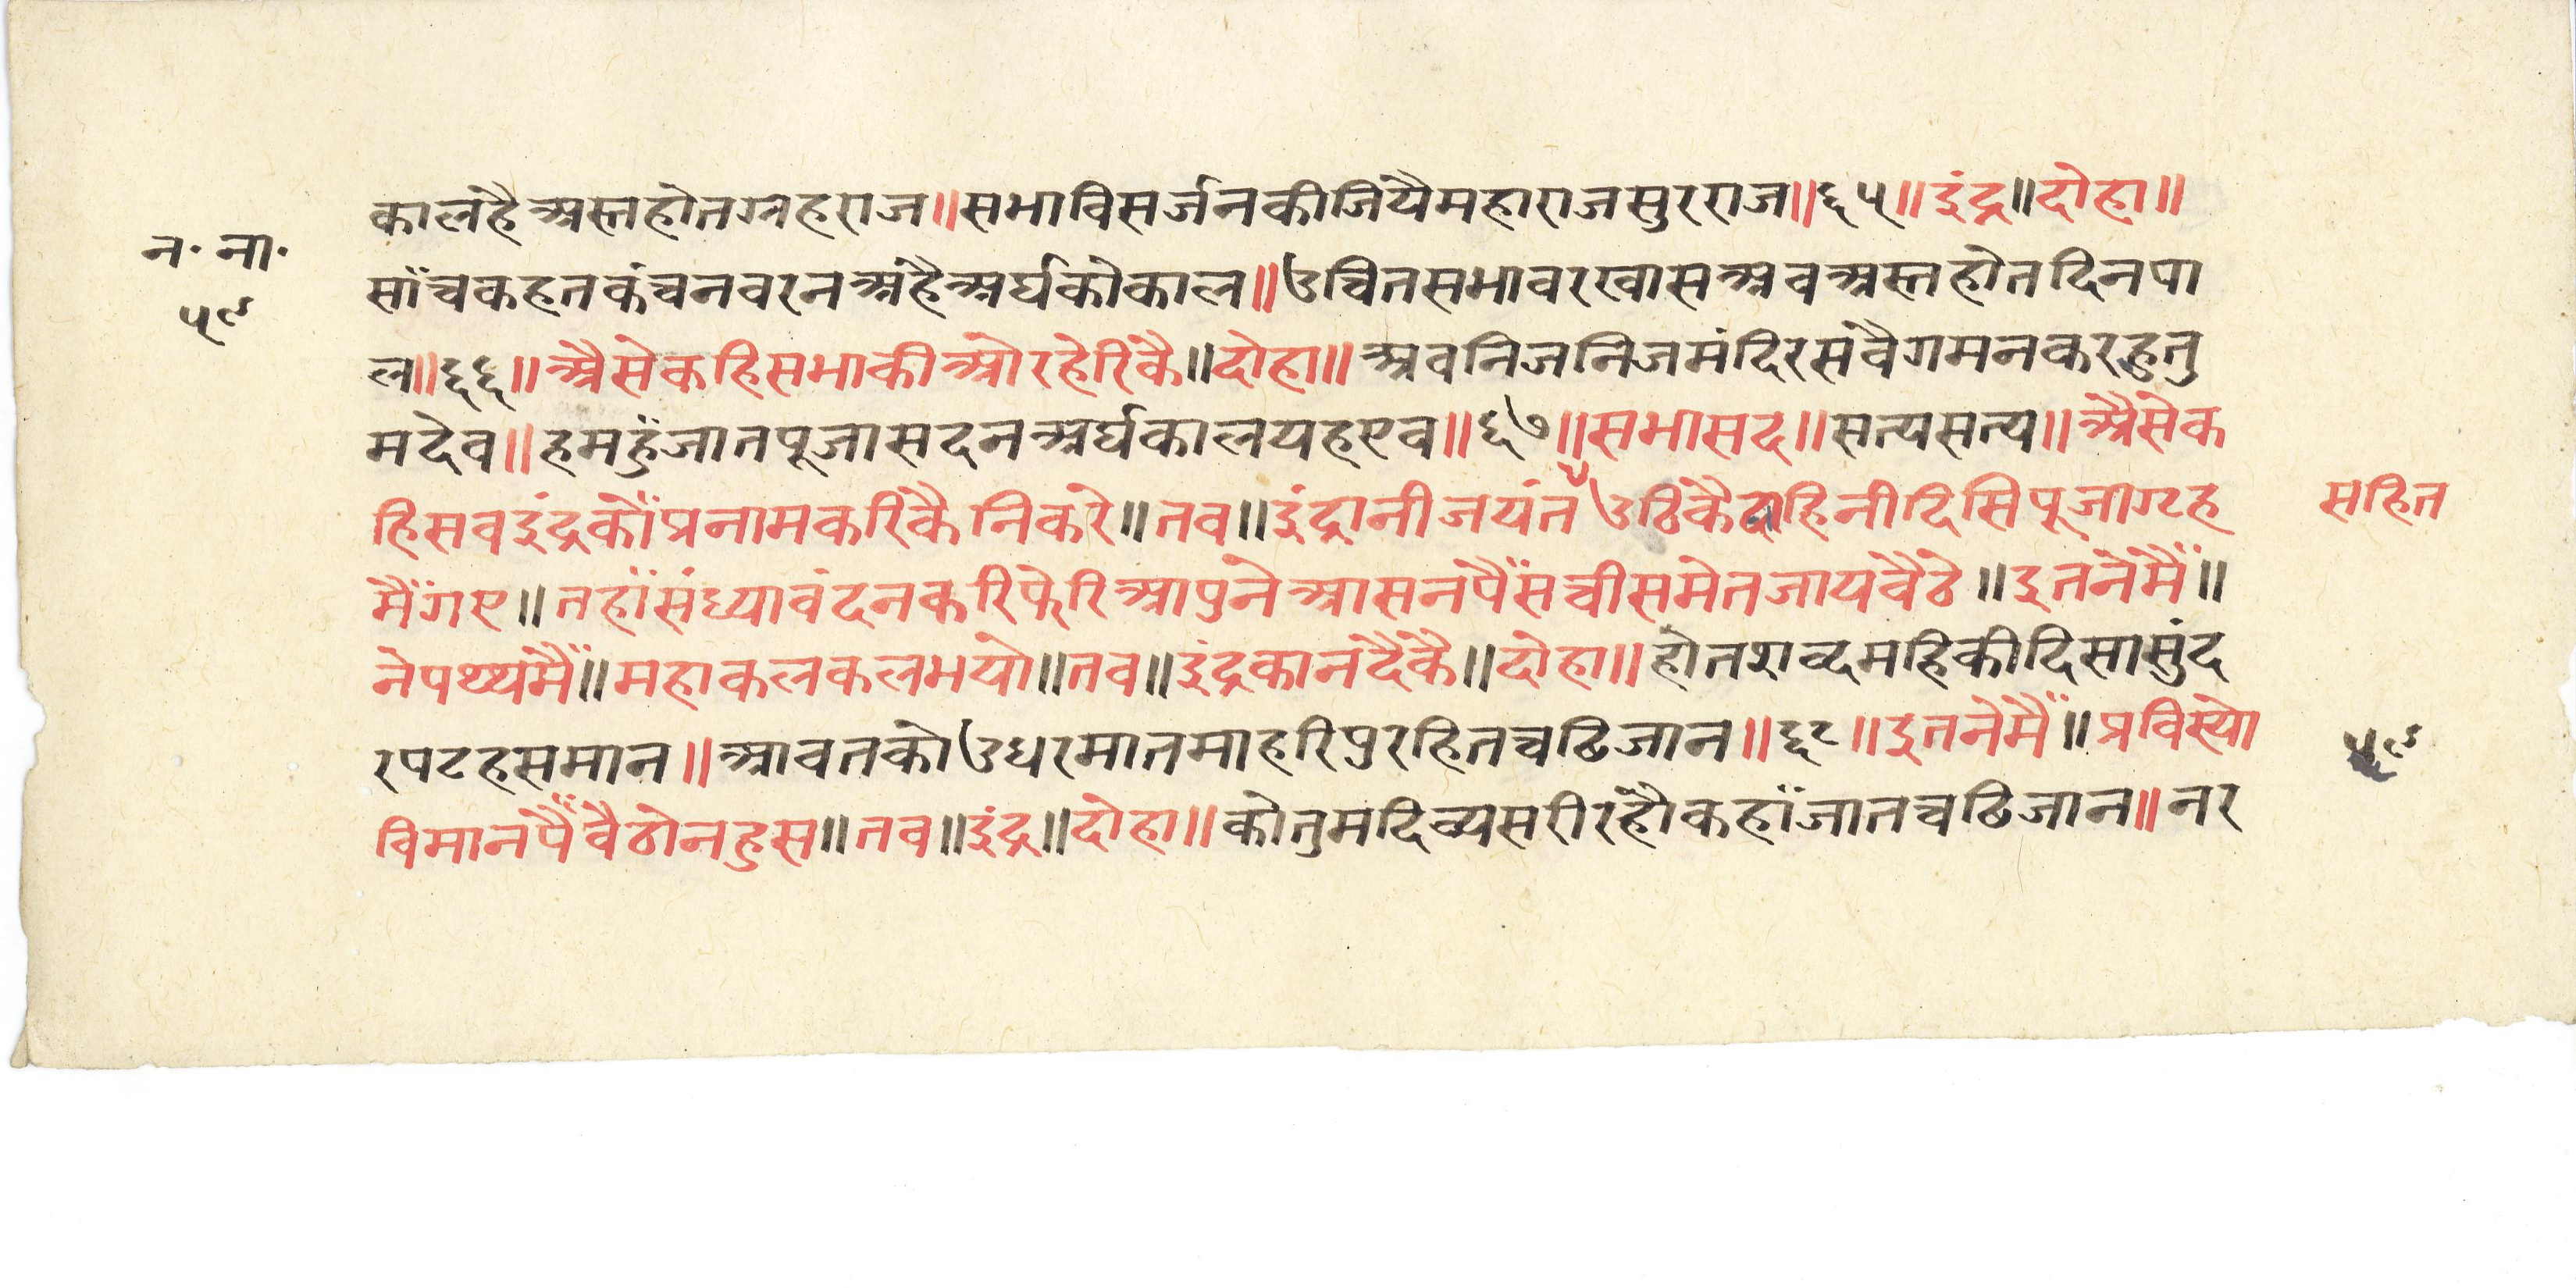 कालहैअस्तहोतग्रहराज॥सभाविसर्जनकीजियैमहाराजसुरराज॥६५॥इंद्र॥दोहा॥
न॰ ना॰
साँचकहतकंचनवरनअहैअर्घकोकाल॥उचितसभावरखासअवअस्तहोतदिनपा
५९
ल॥६६॥अैसेकहिसभाकीओरहेरिकै॥दोहा॥अवनिजनिजमंदिरसवैगमनकरहुतु
मदेव॥हमहुंजातपूजासदनअर्घकालयहएव॥६७॥सभासद॥सत्यसत्य॥अैसेक
हिसवइंद्रकौंप्रनामकरिकैनिकरे॥तव॥इंद्रानीजयंतउठिकैदाहिनीदिसिपूजाग्टह
सहित
मैंगए॥तहाँसंध्यावंदनकरिफेरिआपुनेआसनपैंसचीसमेतजायवैठे॥इतनेमैं॥
नेपथ्यमैं॥महाकलकलभयो॥तव॥इंद्रकानदैकै॥दोहा॥होतशव्दमहिकीदिसासुंद
रपटहसमान॥आवतकोउधरमातमाहरिपुरहितचढिजान॥६८॥इतनेमैं॥प्रविस्यो
५९
विमानपैंवैठोनहुस॥तव॥इंद्र॥दोहा॥कोतुमदिव्यसरीरहौकहाँजातचढिजान॥नर